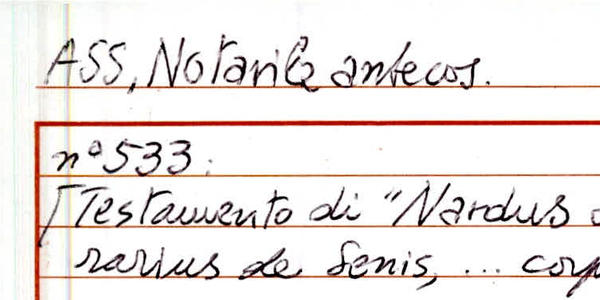 ASS, Notarile antecos.
n° 533.
[Testamento di "Nardus
rarius de Senis, ... corp